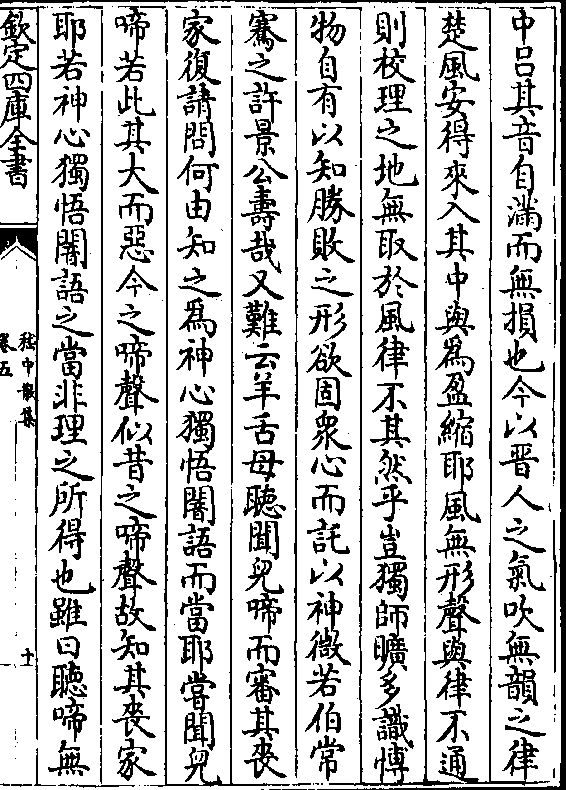 中吕其音自滿而無損也今以晉人之氣吹無韻之律
楚風安得來入其中與爲盈縮耶風無形聲與律不通
則校理之地無取於風律不其然乎豈獨師曠多識愽
物自有以知勝敗之形欲固衆心而託以神微若伯常
騫之許景公壽哉又難云羊舌母聽聞兒啼而審其喪
家復請問何由知之爲神心獨悟闇語而當耶嘗聞兒
啼若此其大而惡今之啼聲似昔之啼聲故知其喪家
耶若神心獨悟闇語之當非理之所得也雖曰聽啼無
欽定四庫全書
嵇中散集
卷五
十